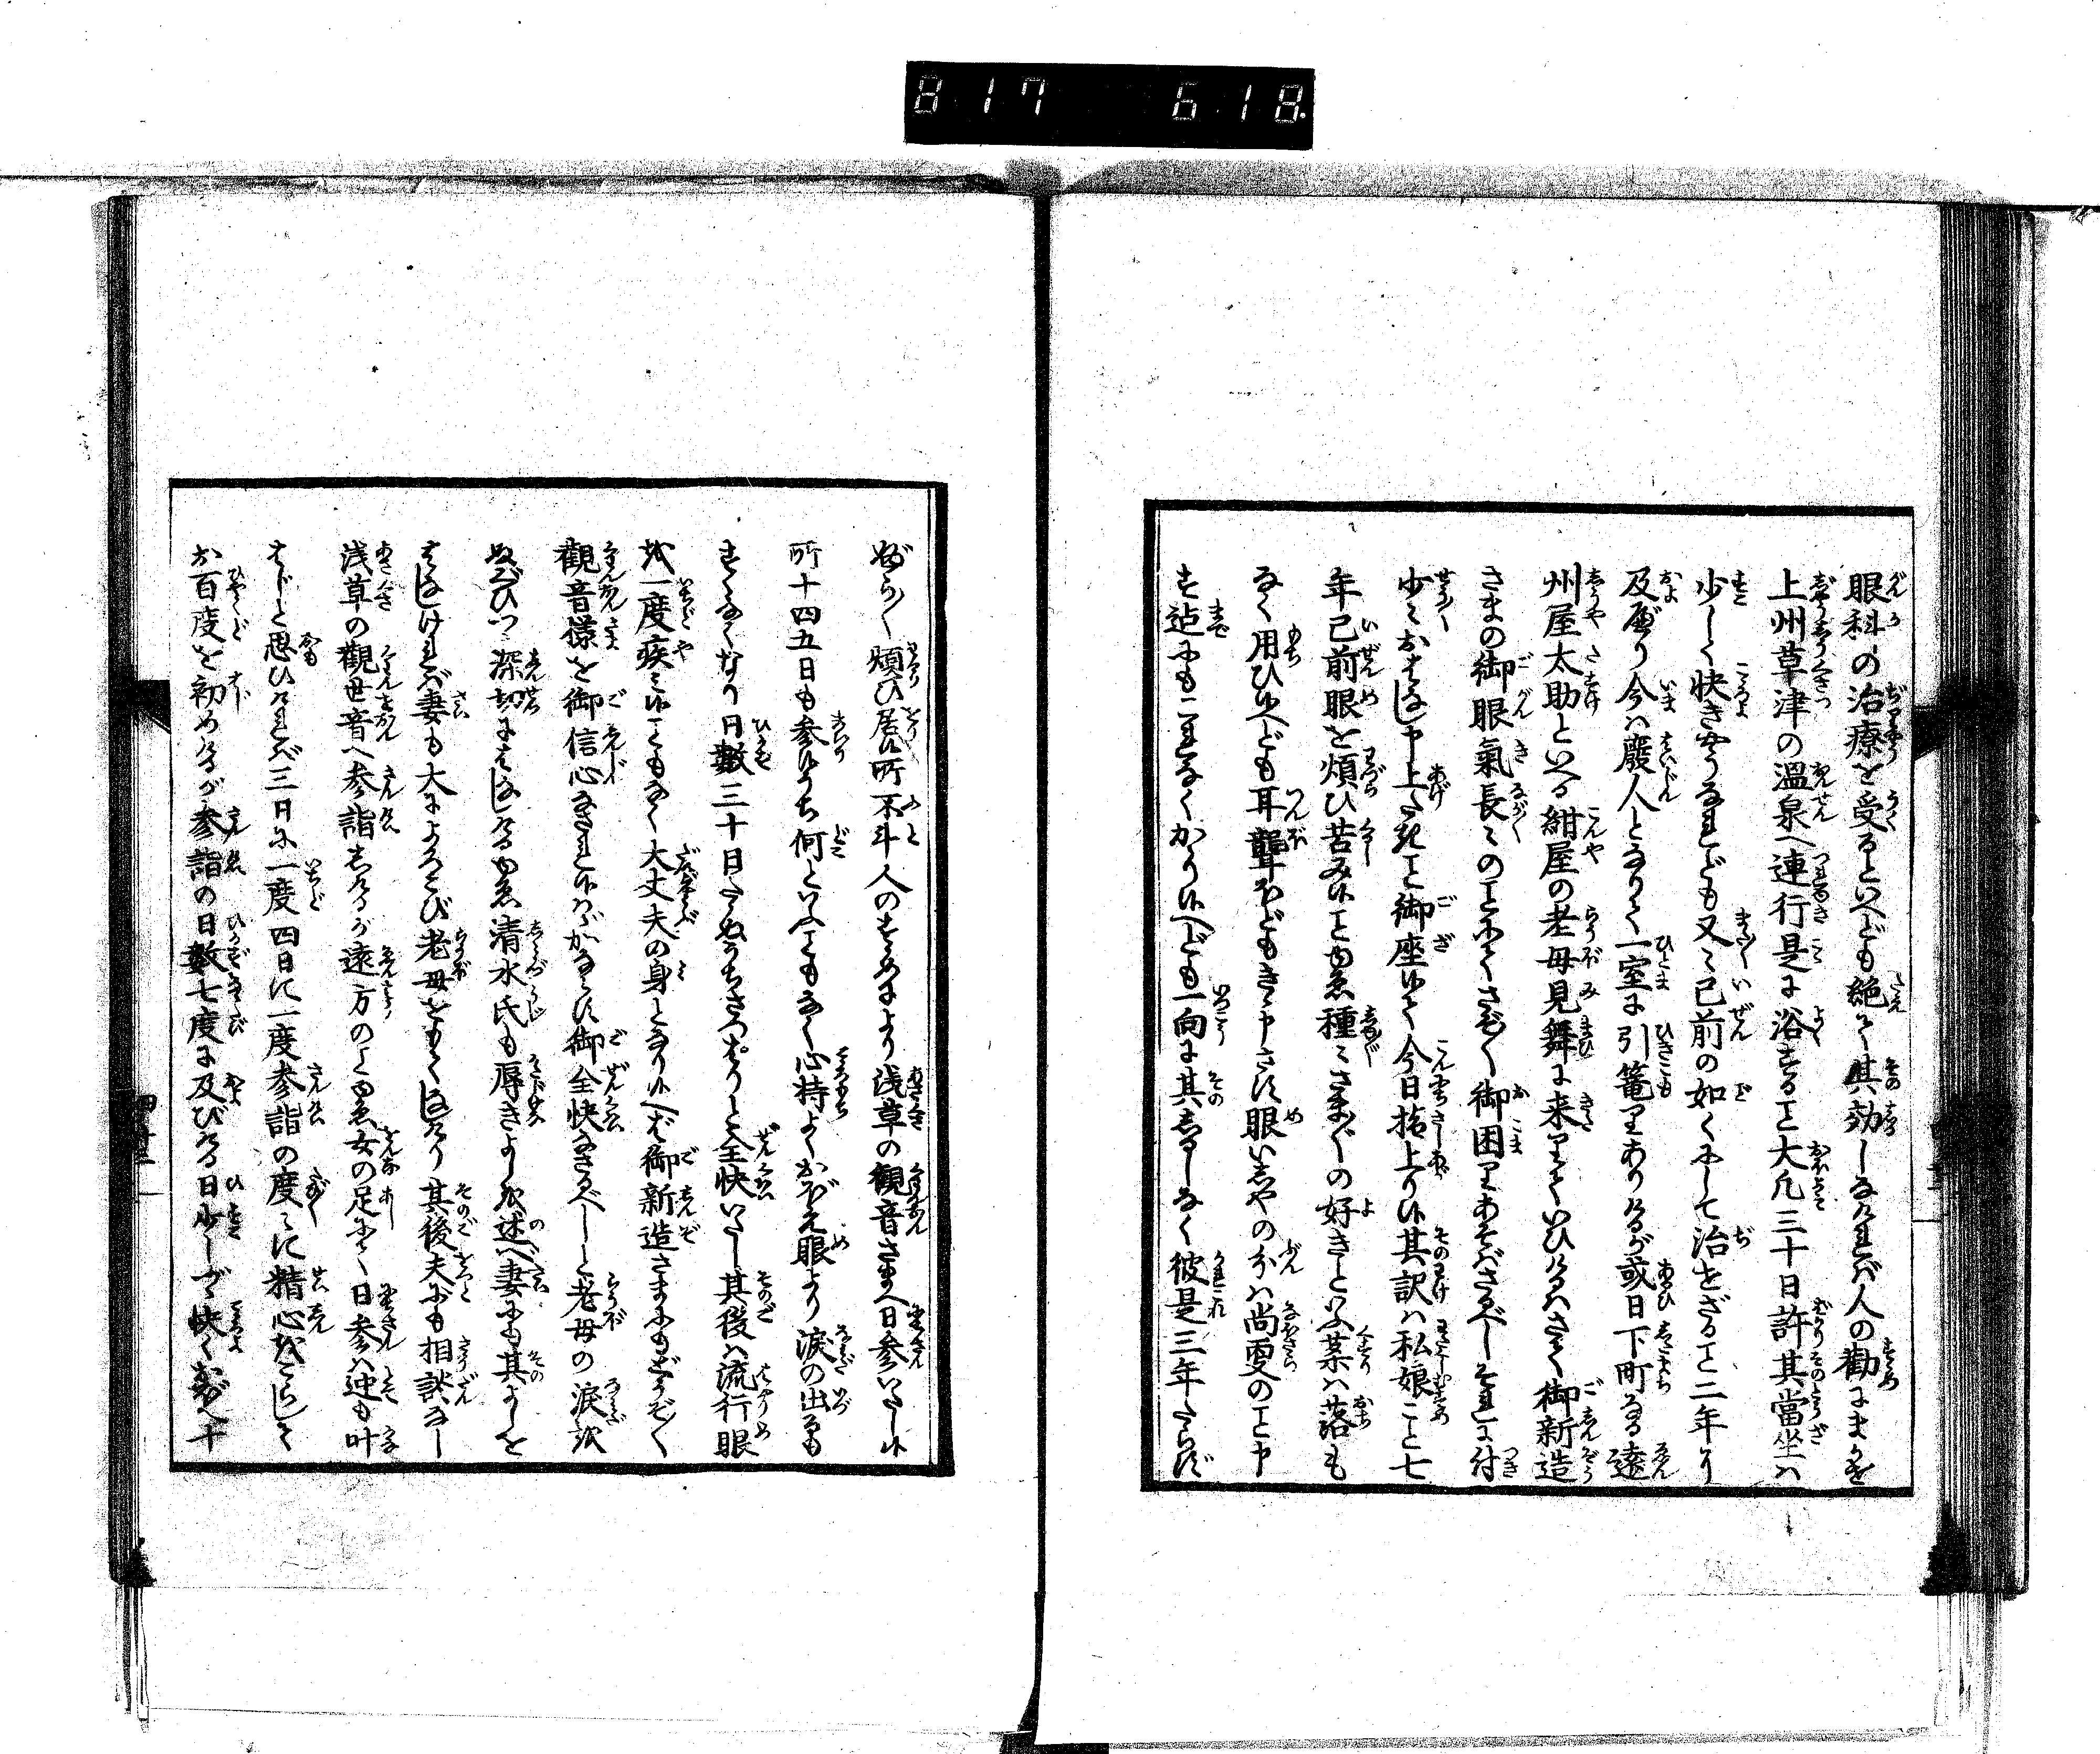 8 17 6 18
眼科の治療を受るといへども絶て其効しなければ人の勧にまかせ
上州草津の温泉へ連行是に浴すること大凡三十日許其當坐は
少しく快きやうなれども又々已前の如くにして治せざること二年に
及びたり今は廢人となりて一室に引篭りありけるが或日下町なる遠
州屋太助といへる紺屋の老母見舞に来りていひけるはさて御新造
さまの御眼氣長々のことにてさぞ〳〵御困りあそばさるべしそれに付
少々おはなし申上たきこと御座候て今日抔上り候其訳は私娘こと七
年已前眼を煩ひ苦み候ことゆゑ種々さま〴〵の好きといふ薬は落も
なく用ひ候へども耳聾ほどもきゝ申さず眼いしやの分は尚更のこと申
す迠にもこれなくかゝり候へども一向に其しるしなく彼是三年たらず
ぶら〳〵煩ひ居候所不斗人のすゝめにより浅草の観音さまへ日参いたし候
所十四五日も参り候うち何といへてもなく心持よくおぼえ眼より涙の出るも
すくなくなり日數三十日たゝぬうちさつぱりと全快いたし其後は流行眼
を一度疾み候こともなく大丈夫の身となり候へば御新造さまにもどうぞ〳〵
觀音様を御信心なされ候はゞかならず御全快なさるべしと老母の涙を
ぬぐひつゝ深切にはなしけるゆゑ清水氏も辱きよしを述べ妻にも其よしを
はなしければ妻も大によろこび老母をもてはなしけり其後夫にも相談なし
浅草の觀世音へ参詣しけるが遠方のことゆゑ女の足にて日参は迚も叶
はじと思ひければ三日に一度四日に一度参詣の度々に精心をこらして
お百度を初めけるが参詣の日數七度に及びける日少しが快くおぼへ十